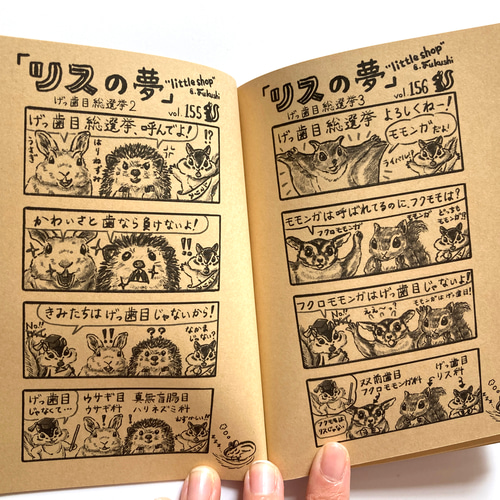 「リスの夢」
"little shop"
e.Fukushi
げっ歯目総選挙2
vol.155
げっ歯目総選挙、呼んでよ!
!?
かわいさと歯なら負けないよ!
!!
きみたちはげっ歯目じゃないから!
No!!
!!
??
なかま
じゃない?
げっ歯目
じゃなくて…
ウサギ目
ウサギ科
真無盲腸目
ハリネズミ科
むずかしい!!
「リスの夢」
"little shop"
e.Fukushi
げっ歯目総選挙3
vol.156
げっ歯目総選挙 よろしくねー!
モモンガだん!
ライバル!!
モモンガは呼ばれてるのに、フクモモは?
フクロモモンガ
モモンガ
どっちも
モモンガ!?
フクロモモンガはげっ歯目じゃないよ!
No!!
モモンガはげっ歯目!
双前歯目
フクロモモンガ科
げっ歯目
リス科
フクモモは
リスじゃない!